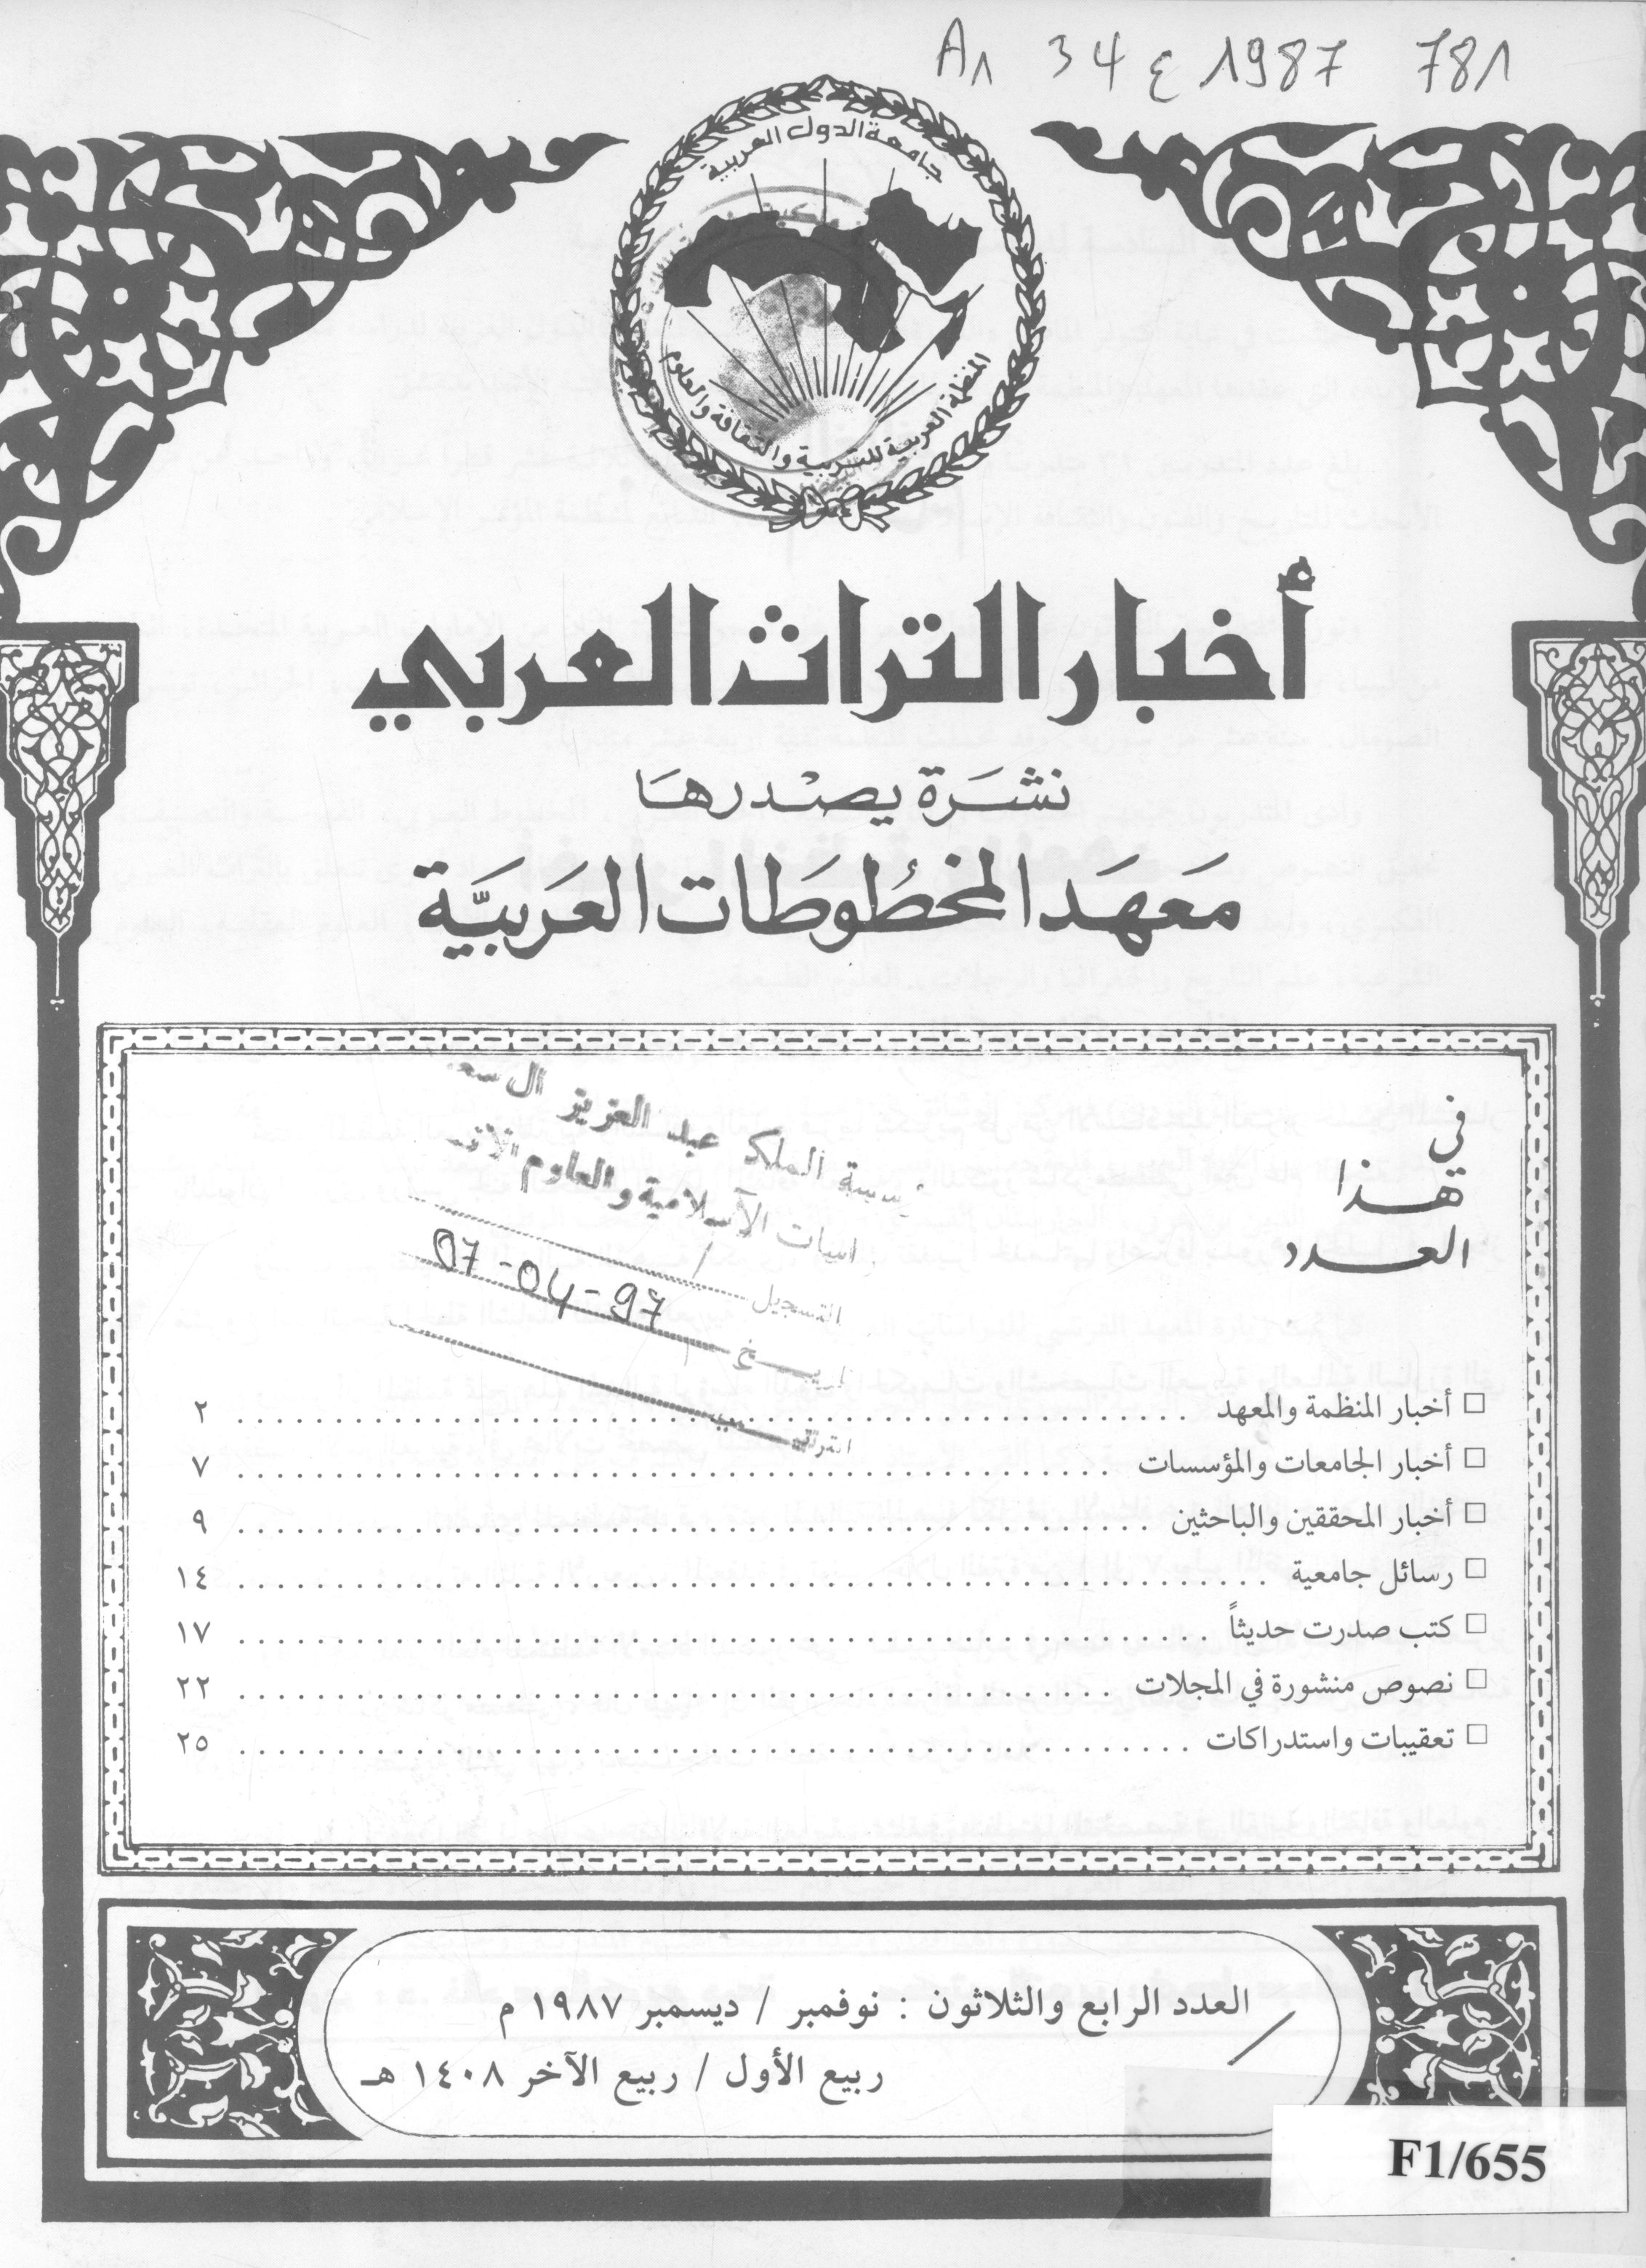 A1 34 ع 1987 781
جامعة الدول العربية
المنظمة العربية للتربية والثقافة والعلوم
أخبار التراث العربي
نشرة يصدرها
معهد المخطوطات العربية
عبد العزيز آل سعو
سسة الملك
اسات الإسلامية والعلوم الانسـ
التسجيل
07-04-97
التاريخ
الترتيب
في
هذا
العدد
□ أخبار المنظمة والمعهد ........ ٢
□ أخبار الجامعات والمؤسسات ........ ٧
□ أخبار المحققين والباحثين ........ ٩
□ رسائل جامعية ........ ١٤
□ كتب صدرت حديثاً ........ ١٧
□ نصوص منشورة في المجلات ........ ٢٢
□ تعقيبات واستدراكات ........ ٢٥
العدد الرابع والثلاثون : نوفمبر / ديسمبر ١٩٨٧ م
ربيع الأول / ربيع الآخر ١٤٠٨ هـ
F1/655